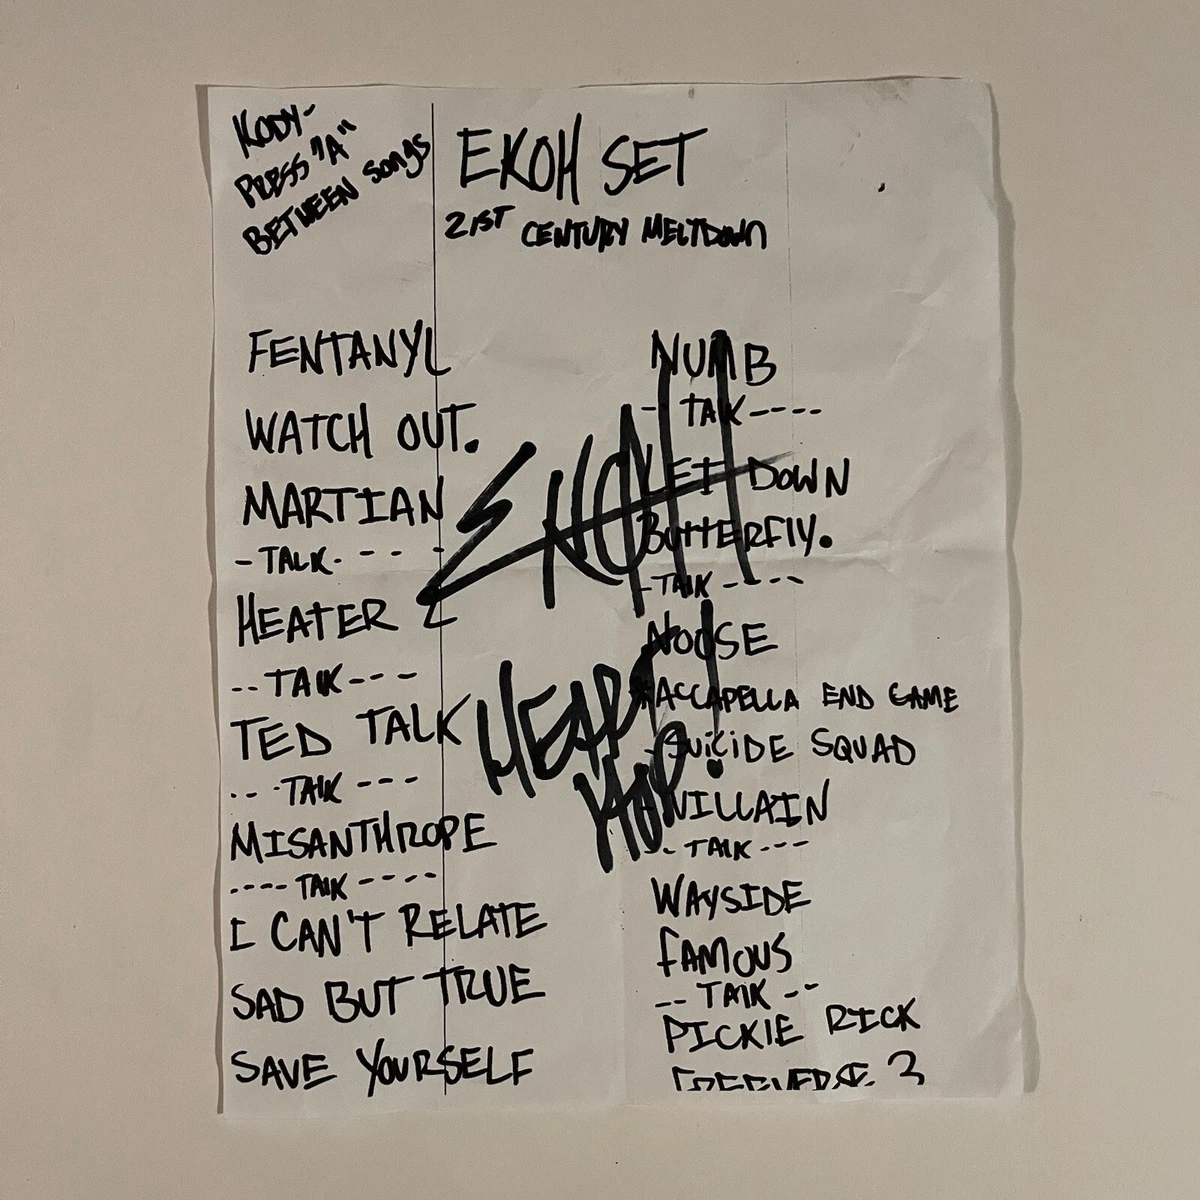 KODY-
PRESS "A"
BETWEEN SONGS
EKOH SET
21ST CENTURY MELTDOWN
FENTANYL
WATCH OUT.
MARTIAN
- TALK - - - -
HEATER 2
-- TALK ---
TED TALK
-- - TALK ---
MISANTHROPE
---- TALK ----
I CAN'T RELATE
SAD BUT TRUE
SAVE YOURSELF
NUMB
- TALK ----
LET DOWN
BUTTERFLY.
- TALK ----
NOOSE
*ACCAPELLA END GAME
- SUICIDE SQUAD
- VILLAIN
-- TALK ---
WAYSIDE
FAMOUS
-- TALK --
PICKLE RICK
EKOH